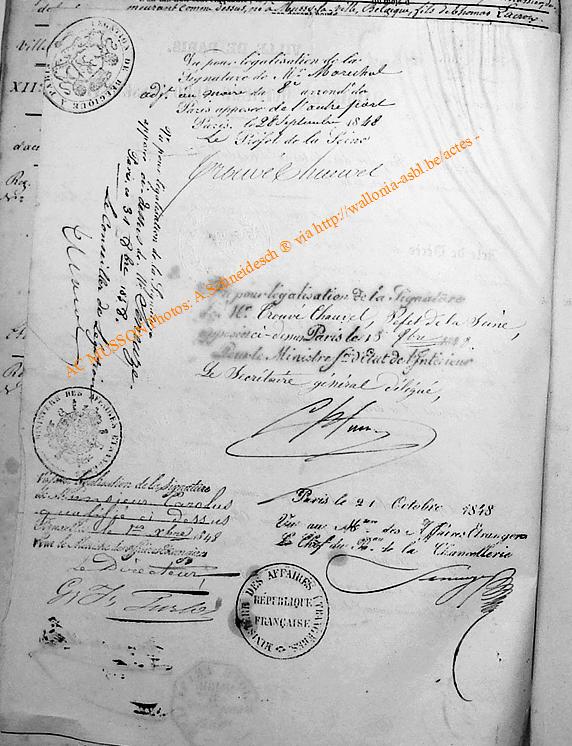 demeurant comme dessus, né à Musson la Ville, Belgique, fils de Thomas Lacroix
LÉGATION DE BELGIQUE À PARIS
Vu pour légalisation de la
Signature de Mr Marechal
adjt au maire du 8e arrond du
Paris apposée de l'autre part
Paris, le 28 Septembre 1848
Le Préfet de la Seine
Trouvé Chauvel
Vu pour légalisation de la Signature
apposée ci dessus de Mr
Paris 31 8bre 1848.
Le Conseiller de Légation
AC MUSSON Photos: A.Schneidesch ® via http://wallonia-asbl.be/actes -
Vu pour légalisation de la Signature
de Mr Trouvé Chauvel, Préfet de la Seine,
apposée ci-dessus Paris le 13 8bre 1848
Pour le Ministre Sre d'Etat de l'Intérieur
Le Secrétaire général délégué,
MINISTÈRE DES AFFAIRES ÉTRANGÈRES
Vu pour légalisation de la Signature
de Monsieur Carolus
qualifié ci dessus
Bruxelles le 1er Xbre 1848
Pour le Ministre des affaires Etrangères
Le Directeur,
Paris le 21 Octobre 1848
Vu au Min des Affaires Etrangères
Le Chef du Bau de la Chancellerie
MINISTÈRE DES AFFAIRES ÉTRANGÈRES.
RÉPUBLIQUE
FRANÇAISE